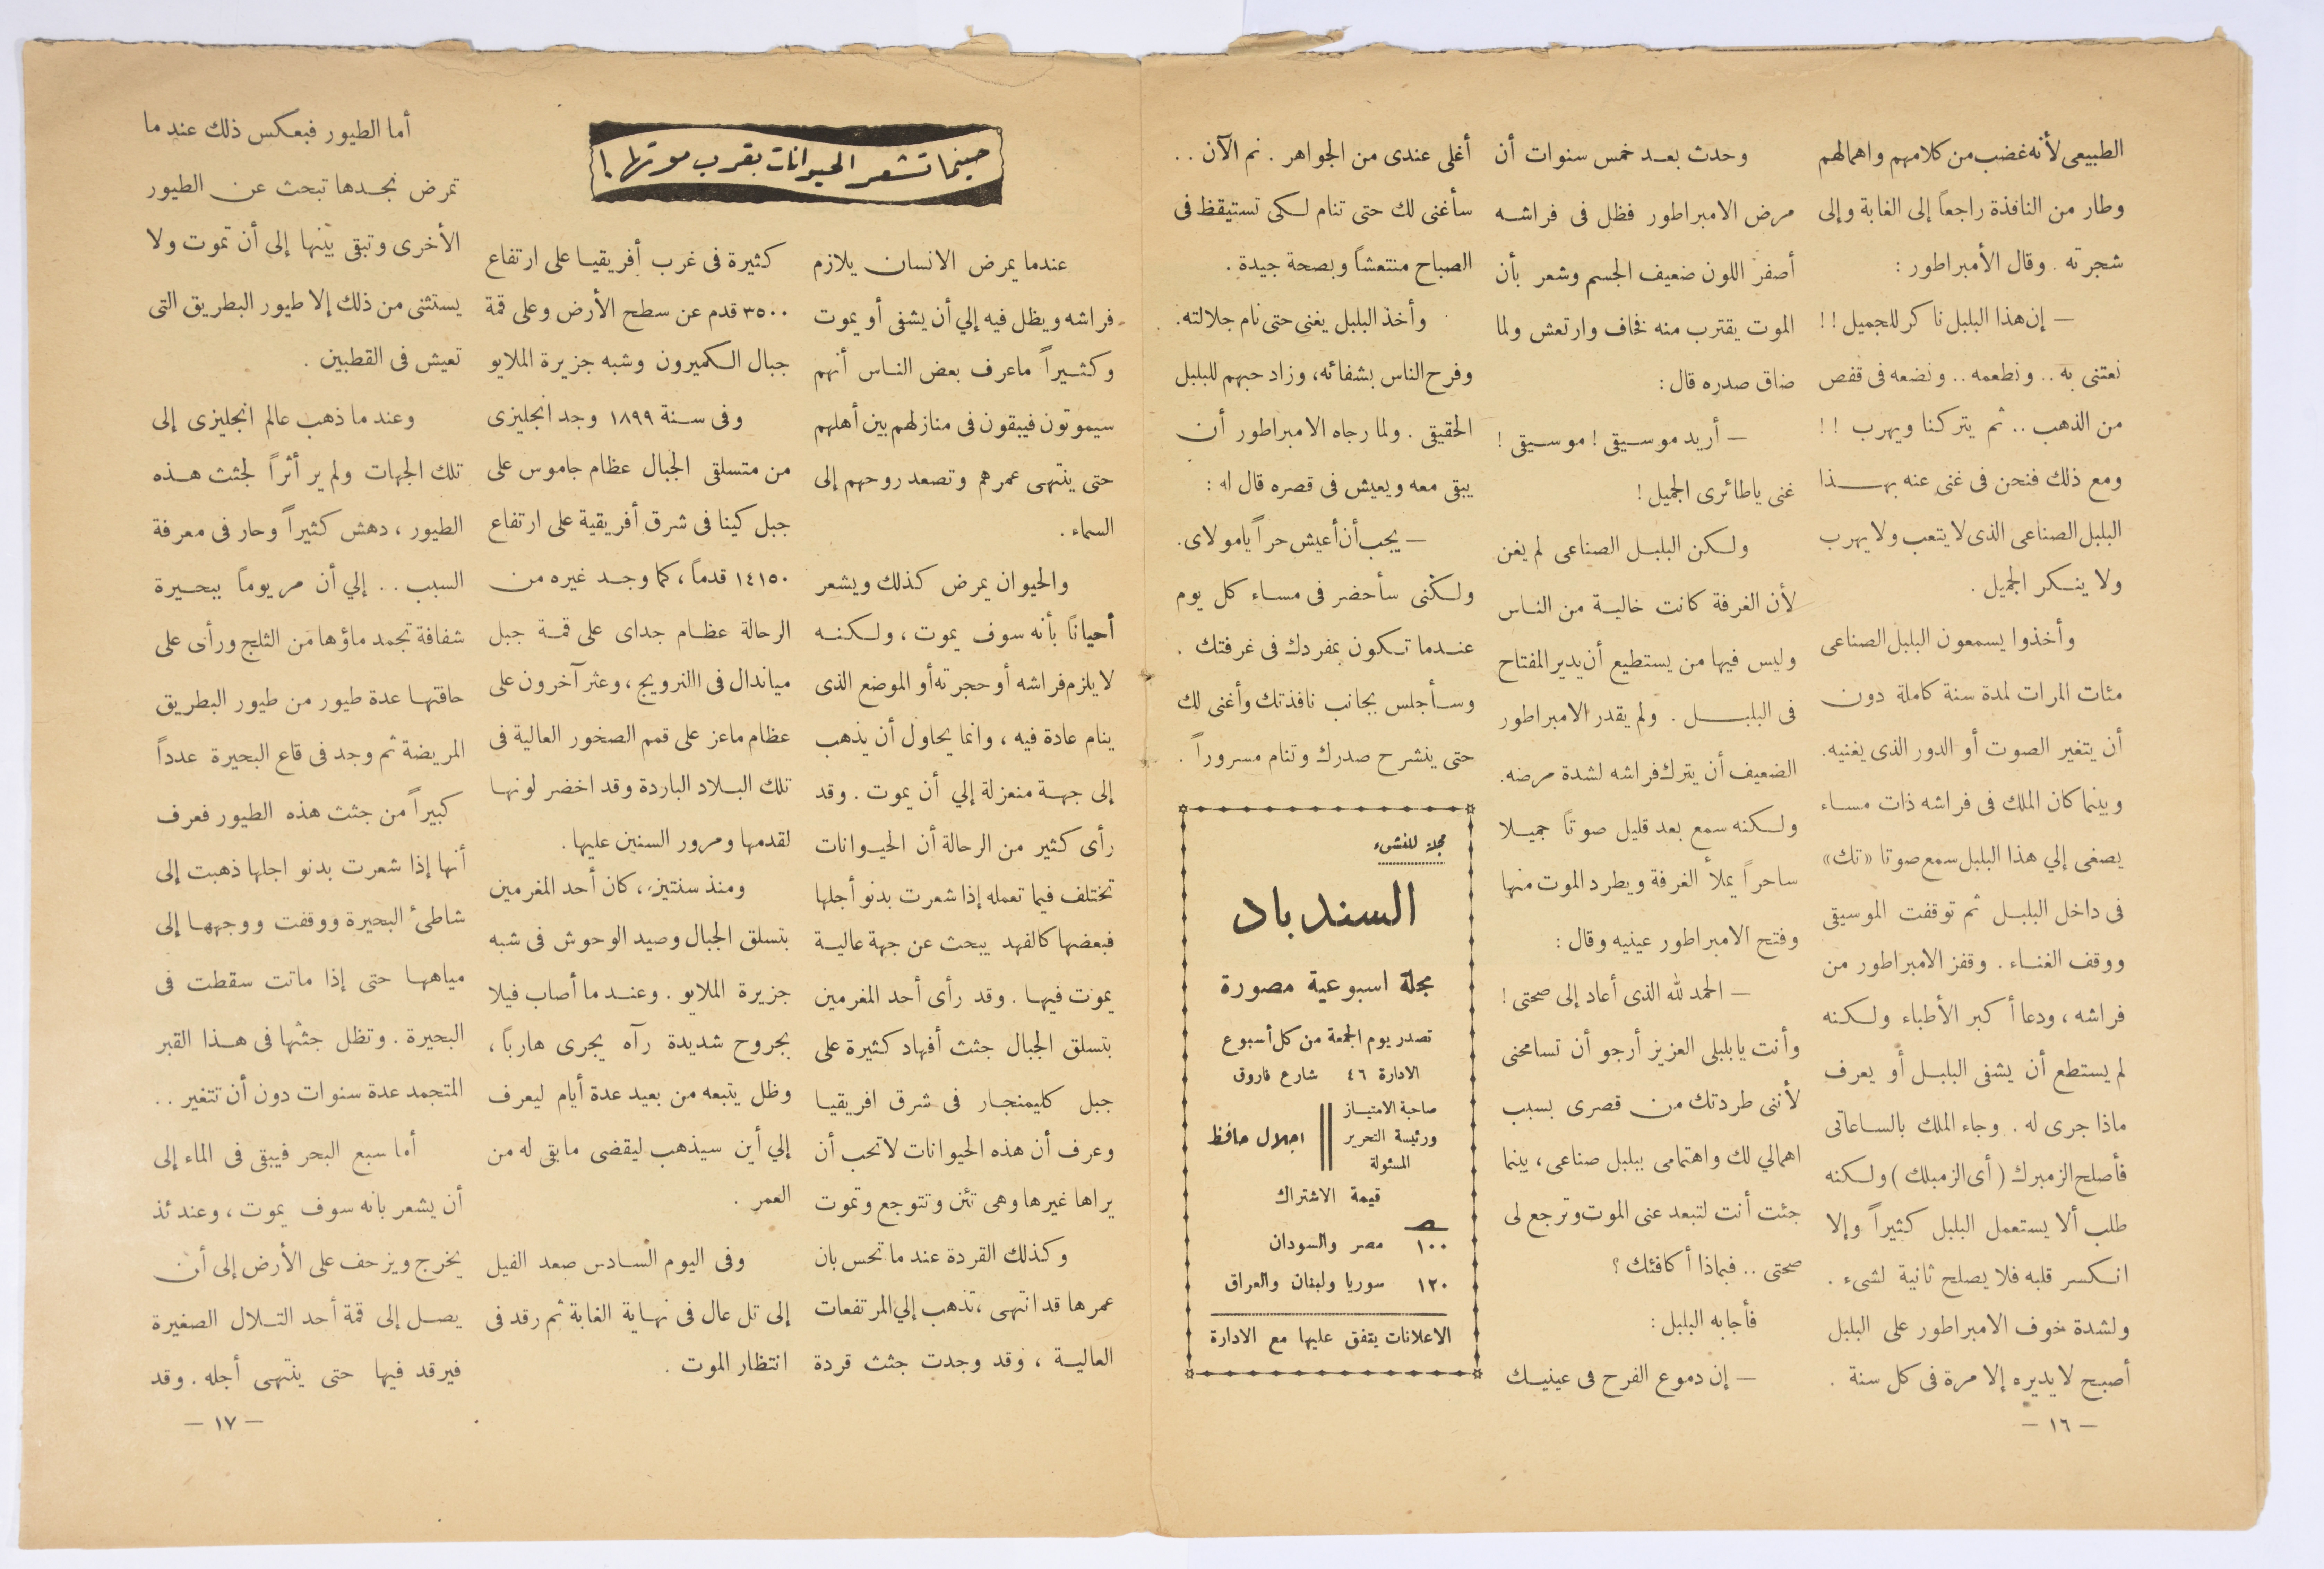 الطبيعى لأنه غضب من كلامهم واهمالهم
وطار من النافذة راجعاً إلى الغابة وإلى
شجرته . وقال الأمبراطور :
— إن هذا البلبل ناكر للجميل ! !
نعتنى به .. ونطعمه .. ونضعه فى قفص
من الذهب .. ثم يتركنا ويهرب ! !
ومع ذلك فنحن فى غنى عنه بهـــذا
البلبل الصناعى الذى لا يتعب ولا يهرب
ولا ينكر الجميل .
وأخذوا يسمعون البلبل الصناعى
مئات المرات لمدة سنة كاملة دون
أن يتغير الصوت أو الدور الذى يغنيه .
وبينما كان الملك فى فراشه ذات مساء
يصغى إلي هذا البلبل سمع صوتا «تك»
فى داخل البلبل ثم توقفت الموسيقى
ووقف الغناء . وقفز الامبراطور من
فراشه ، ودعا أكبر الأطباء ولكنه
لم يستطع أن يشفى البلبل أو يعرف
ماذا جرى له . وجاء الملك بالساعاتى
فأصلح الزمبرك ( أى الزمبلك ) ولكنه
طلب ألا يستعمل البلبل كثيراً وإلا
انكسر قلبه فلا يصلح ثانية لشىء .
ولشدة خوف الامبراطور على البلبل
أصبح لا يديره إلا مرة فى كل سنة .
— ١٦ —
وحدث بعد خمس سنوات أن
مرض الامبراطور فظل فى فراشه
أصفر اللون ضعيف الجسم وشعر بأن
الموت يقترب منه فخاف وارتعش ولما
ضاق صدره قال :
— أريد موسيقى ! موسيقى !
غنى ياطائرى الجميل !
ولكن البلبل الصناعى لم يغن
لأن الغرفة كانت خالية من الناس
وليس فيها من يستطيع أن يدير المفتاح
فى البلبل . ولم يقدر الامبراطور
الضعيف أن يترك فراشه لشدة مرضه .
ولكنه سمع بعد قليل صوتاً جميلا
ساحراً يملأ الغرفة ويطرد الموت منها
وفتح الامبراطور عينيه وقال :
— الحمد لله الذى أعاد إلى صحتى !
وأنت يابلبلى العزيز أرجو أن تسامحنى
لأننى طردتك من قصرى بسبب
اهمالي لك واهتمامى ببلبل صناعى ، بينما
جئت أنت لتبعد عنى الموت وترجع لى
صحتى .. فبماذا أكافئك ؟
فأجابه البلبل :
— إن دموع الفرح فى عينيك
أغلى عندى من الجواهر . نم الآن . .
سأغنى لك حتى تنام لكى تستيقظ فى
الصباح منتعشاً وبصحة جيدة .
وأخذ البلبل يغنى حتى نام جلالته .
وفرح الناس بشفائه ، وزاد حبهم للبلبل
الحقيقى . ولما رجاه الامبراطور أن
يبقى معه ويعيش فى قصره قال له :
— يجب أن أعيش حراً يامولاى .
ولكنى سأحضر فى مساء كل يوم
عندما تكون بمفردك فى غرفتك .
وسأجلس بجانب نافذتك وأغنى لك
حتى ينشرح صدرك وتنام مسروراً .
مجلة للنشىء
السندباد
مجلة اسبوعية مصورة
تصدر يوم الجمعة من كل أسبوع
الادارة ٤٦ شارع فاروق
صاحبة الامتياز
ورئيسة التحرير
المسئولة
اجلال حافظ
قيمة الاشتراك
١٠٠ مصر والسودان
١٢٠ سوريا ولبنان والعراق
الاعلانات يتفق عليها مع الادارة
حينما تشعر الحيوانات بقرب موتها !
عندما يمرض الانسان يلازم
فراشه ويظل فيه إلي أن يشفى أو يموت
وكثيراً ماعرف بعض الناس أنهم
سيموتون فيبقون فى منازلهم بين أهلهم
حتى ينتهى عمرهم وتصعد روحهم إلى
السماء .
والحيوان يمرض كذلك ويشعر
أحياناً بأنه سوف يموت ، ولكنه
لا يلزم فراشه أو حجرته أو الموضع الذى
ينام عادة فيه ، وانما يحاول أن يذهب
إلى جهة منعزلة إلي أن يموت . وقد
رأى كثير من الرحالة أن الحيوانات
تختلف فيما تعمله إذا شعرت بدنو أجلها
فبعضها كالفهد يبحث عن جهة عالية
يموت فيها . وقد رأى أحد المغرمين
بتسلق الجبال جثث أفهاد كثيرة على
جبل كليمنجار فى شرق افريقيا
وعرف أن هذه الحيوانات لا تحب أن
يراها غيرها وهى تئن وتتوجع وتموت
وكذلك القردة عند ما تحس بان
عمرها قد انتهى ، تذهب إلي المرتفعات
العالية ، وقد وجدت جثث قردة
كثيرة فى غرب أفريقيا على ارتفاع
٣٥٠٠ قدم عن سطح الأرض وعلى قمة
جبال الكميرون وشبه جزيرة الملايو
وفى سنة ١٨٩٩ وجد انجليزى
من متسلقى الجبال عظام جاموس على
جبل كينا فى شرق أفريقية على ارتفاع
١٤١٥٠ قدماً ، كما وجد غيره من
الرحالة عظام جداى على قمة جبل
مياندال فى االنرويج ، وعثر آخرون على
عظام ماعز على قمم الصخور العالية فى
تلك البلاد الباردة وقد اخضر لونها
لقدمها ومرور السنين عليها .
ومنذ سنتين ، كان أحد المغرمين
بتسلق الجبال وصيد الوحوش فى شبه
جزيرة الملايو . وعند ما أصاب فيلا
بجروح شديدة رآه يجرى هارباً ،
وظل يتبعه من بعيد عدة أيام ليعرف
إلي أين سيذهب ليقضى ما بقى له من
العمر .
وفى اليوم السادس صعد الفيل
إلى تل عال فى نهاية الغابة ثم رقد فى
انتظار الموت .
أما الطيور فبعكس ذلك عند ما
تمرض نجدها تبحث عن الطيور
الأخرى وتبقى بينها إلى أن تموت ولا
يستثنى من ذلك إلا طيور البطريق التى
تعيش فى القطبين .
وعند ما ذهب عالم انجليزى إلى
تلك الجهات ولم ير أثراً لجثث هذه
الطيور ، دهش كثيراً وحار فى معرفة
السبب . . إلي أن مر يوماً ببحيرة
شفافة تجمد ماؤها من الثلج ورأى على
حافتها عدة طيور من طيور البطريق
المريضة ثم وجد فى قاع البحيرة عدداً
كبيراً من جثث هذه الطيور فعرف
أنها إذا شعرت بدنو اجلها ذهبت إلى
شاطىء البحيرة ووقفت ووجهها إلى
مياهها حتى إذا ماتت سقطت فى
البحيرة . وتظل جثثها فى هذا القبر
المتجمد عدة سنوات دون أن تتغير . .
أما سبع البحر فيبقى فى الماء إلى
أن يشعر بانه سوف يموت ، وعندئذ
يخرج ويزحف على الأرض إلى أن
يصل إلى قمة أحد التلال الصغيرة
فيرقد فيها حتى ينتهى أجله . وقد
— ١٧ —